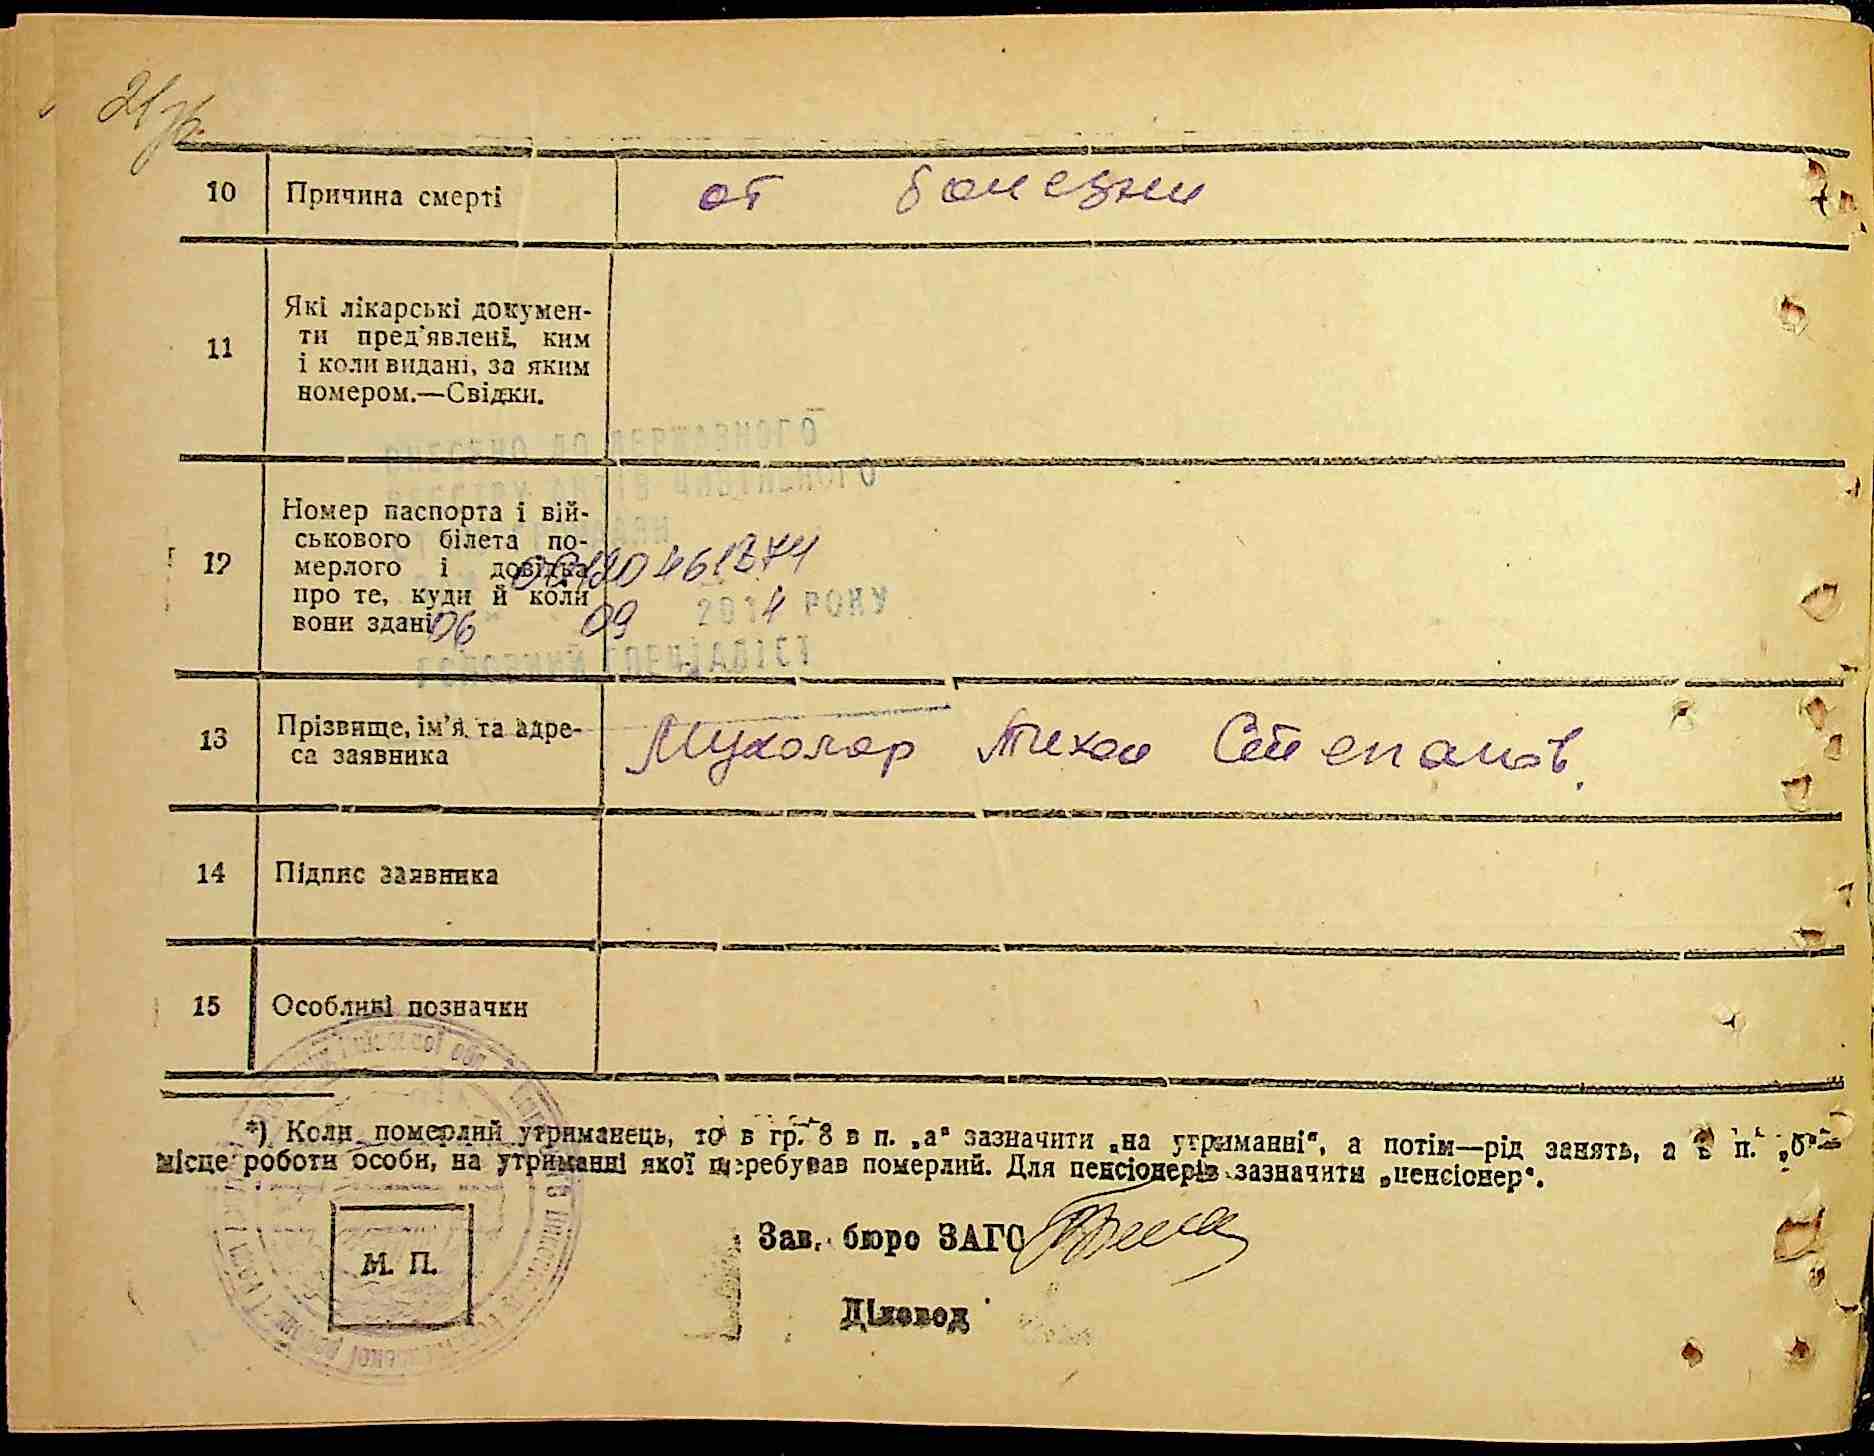 10 Причина смерті от болезни
11 Які лікарські докумен-
ти пред'явлені, ким
і коли видані, за яким
номером.—Свідки.
ВНЕСЕНО ДО ДЕРЖАВНОГО
РЕЄСТРУ АКТІВ ЦИВІЛЬНОГО
12 Номер паспорта і вій-
ськового білета по-
мерлого і довідка
про те, куди й коли
вони здані
06 09 2014 РОКУ
ГОЛОВНИЙ СПЕЦІАЛІСТ
13 Прізвище, ім'я та адре-
са заявника
Степанов.
14 Підпис заявника
15 Особливі позначки
*) Коли померлий утриманець, то в гр. 8 в п. „а“ зазначити „на утриманні“, а потім—рід занять, а в п. „б“—
місце роботи особи, на утриманні якої перебував померлий. Для пенсіонерів зазначити „пенсіонер“.
Зав. бюро ЗАГС
М. П.
Діловод